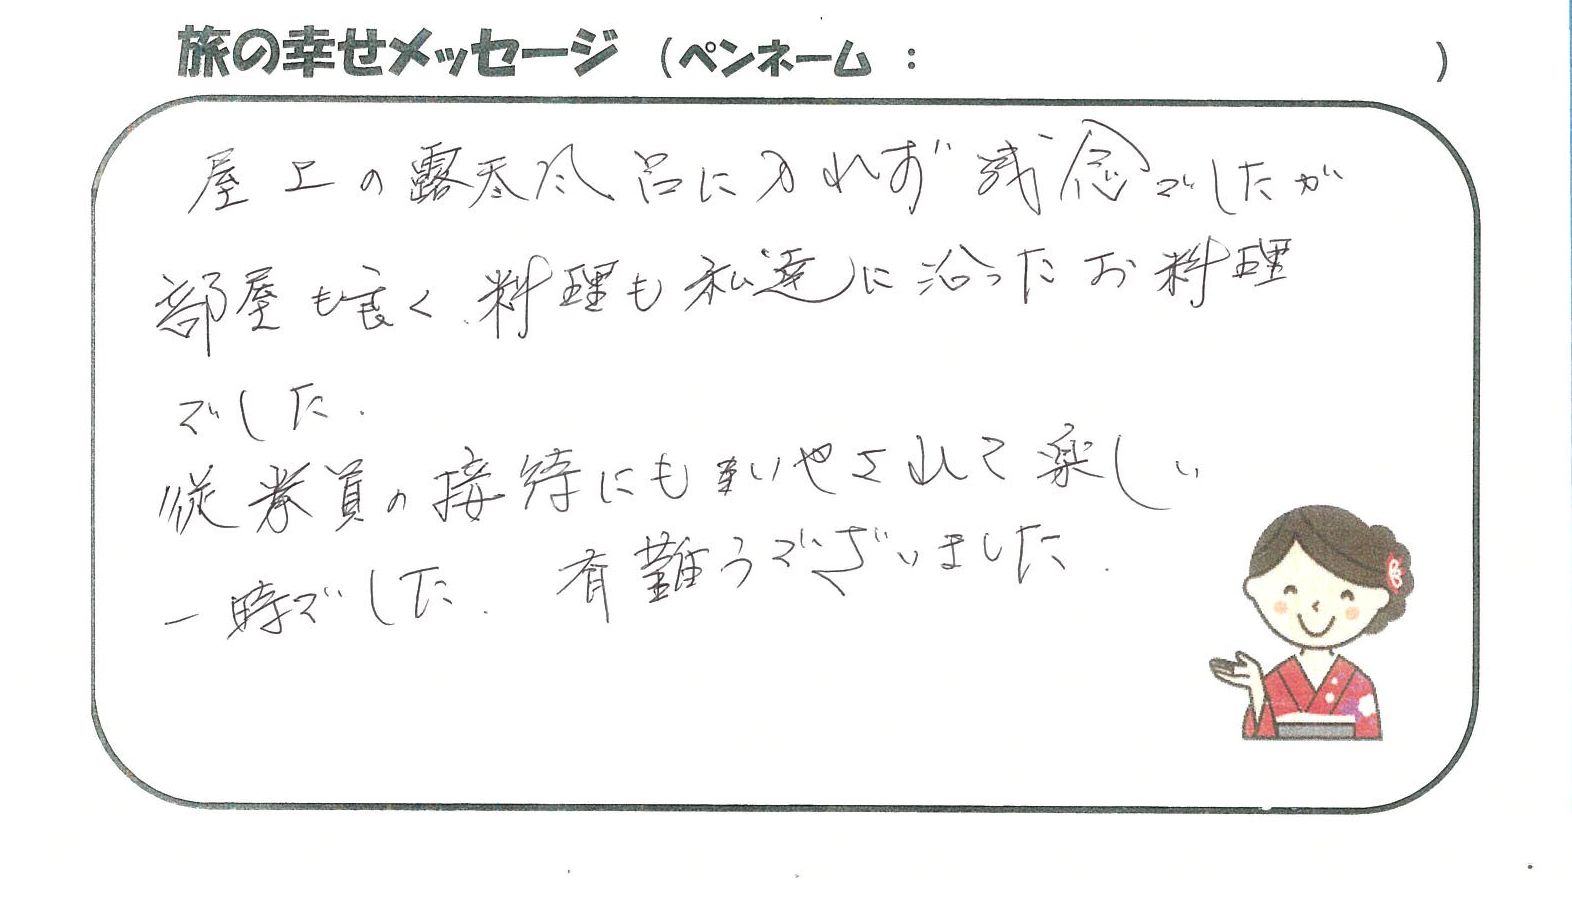 旅の幸せメッセージ（ペンネーム：　　　）
屋上の露天風呂に入れず残念でしたが
部屋も良く、料理も私達に沿ったお料理
でした.
従業員の接待にもいやされて楽しい
一時でした. 有難うございました.